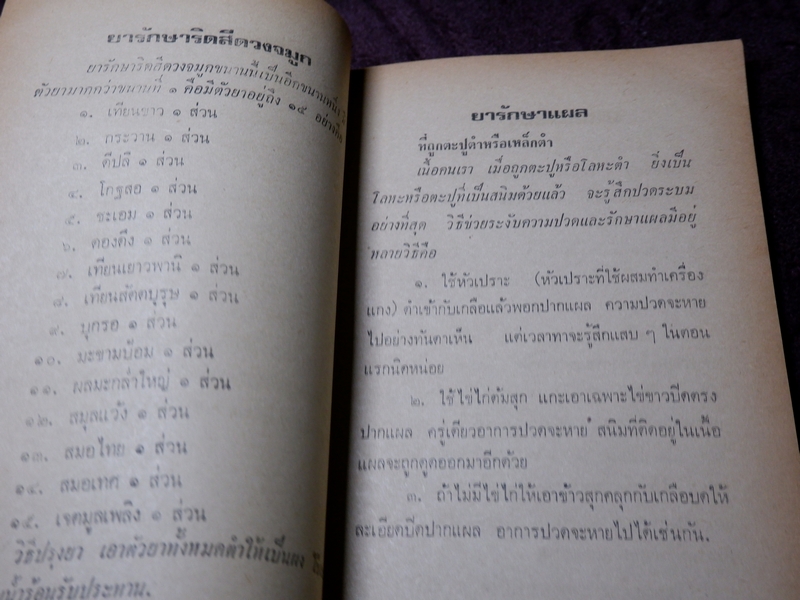 ยารักษาริดสีดวงจมูก
ยารักษาริดสีดวงจมูกขนานนี้เป็นอีกขนานหนึ่ง
ตัวยามากกว่าขนานที่ ๑ คือมีตัวยาอยู่ถึง ๑๕ อย่าง
๑. เทียนขาว ๑ ส่วน
๒. กระวาน ๑ ส่วน
๓. ดีปลี ๑ ส่วน
๔. โกฐสอ ๑ ส่วน
๕. ชะเอม ๑ ส่วน
๖. ดองดึง ๑ ส่วน
๗. เทียนเยาวพานี ๑ ส่วน
๘. เทียนสัตตบุรุษ ๑ ส่วน
๙. บุกรอ ๑ ส่วน
๑๐. มะขามป้อม ๑ ส่วน
๑๑. ผลมะกล่ำใหญ่ ๑ ส่วน
๑๒. สมุลแว้ง ๑ ส่วน
๑๓. สมอไทย ๑ ส่วน
๑๔. สมอเทศ ๑ ส่วน
๑๕. เจตมูลเพลิง ๑ ส่วน
วิธีปรุงยา เอาตัวยาทั้งหมดตำให้เป็นผง
น้ำร้อนรับประทาน.
ยารักษาแผล
ที่ถูกตะปูตำหรือเหล็กตำ
เนื้อคนเรา เมื่อถูกตะปูหรือโลหะตำ ยิ่งเป็น
โลหะหรือตะปูที่เป็นสนิมด้วยแล้ว จะรู้สึกปวดระบม
อย่างที่สุด วิธีช่วยระงับความปวดและรักษาแผลมีอยู่
หลายวิธีคือ
๑. ใช้หัวเปราะ (หัวเปราะที่ใช้ผสมทำเครื่อง
แกง) ตำเข้ากับเกลือแล้วพอกปากแผล ความปวดจะหาย
ไปอย่างทันตาเห็น แต่เวลาทาจะรู้สึกแสบ ๆ ในตอน
แรกนิดหน่อย
๒. ใช้ไข่ไก่ต้มสุก แกะเอาเฉพาะไข่ขาวปิดตรง
ปากแผล ครู่เดียวอาการปวดจะหาย สนิมที่ติดอยู่ในเนื้อ
แผลจะถูกดูดออกมาอีกด้วย
๓. ถ้าไม่มีไข่ไก่ให้เอาข้าวสุกคลุกกับเกลือบดให้
ละเอียดปิดปากแผล อาการปวดจะหายไปได้เช่นกัน.